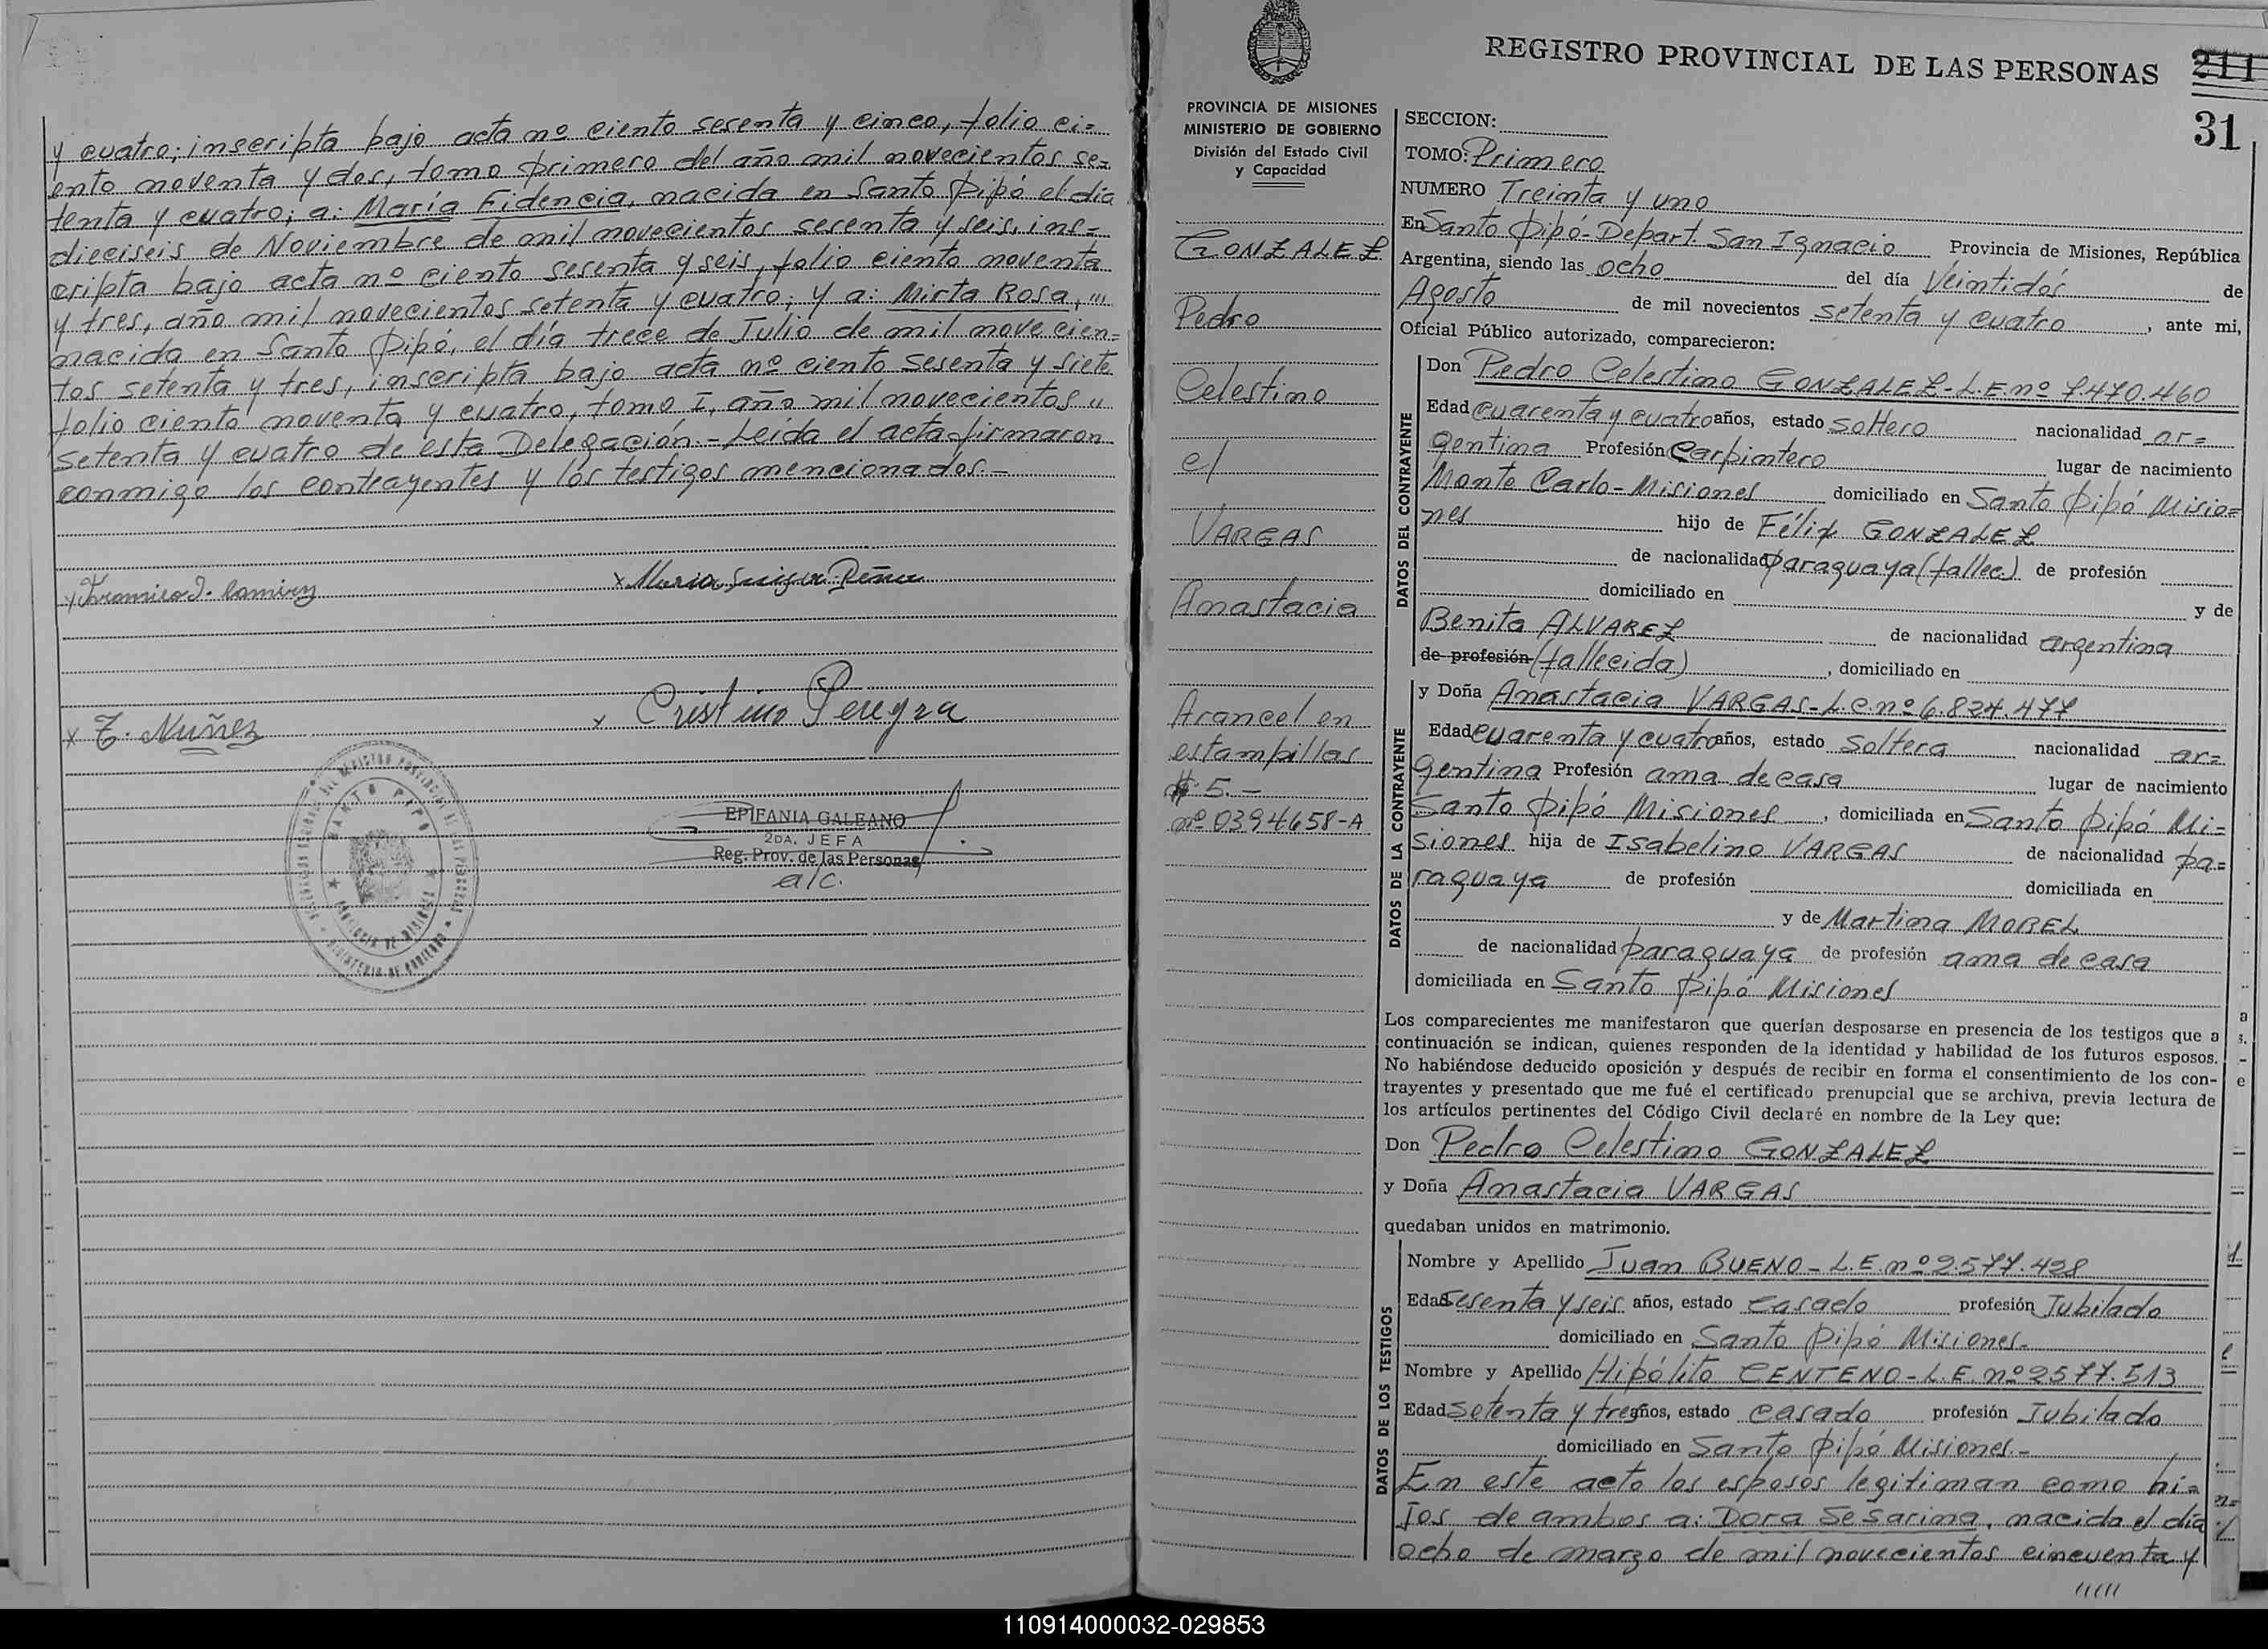 y cuatro; inscripta bajo acta nº ciento sesenta y cinco, folio ci=
ento noventa y dos, tomo primero del año mil novecientos se=
tenta y cuatro; a: María Fidencia, nacida en Santo Pipó el día
dieciseis de Noviembre de mil novecientos sesenta y seis, ins=
cripta bajo acta nº ciento sesenta y seis, folio ciento noventa
y tres, año mil novecientos setenta y cuatro; y a: Mirta Rosa, "'
nacida en Santo Pipó, el día trece de Julio de mil novecien=
tos setenta y tres, inscripta bajo acta nº ciento sesenta y siete
folio ciento noventa y cuatro, tomo I, año mil novecientos "
setenta y cuatro de ésta Delegación.- Leída el acta firmaron
conmigo los contrayentes y los testigos mencionados.-
x Maria Luisa Peña
x T. Nuñez
x Cristino Pereyra
SANTO PIPO
EPIFANIA GALEANO
2DA. JEFA
Reg. Prov. de las Personas
a/c.
REGISTRO PROVINCIAL DE LAS PERSONAS
211
31
PROVINCIA DE MISIONES
MINISTERIO DE GOBIERNO
División del Estado Civil
y Capacidad
GONZALEZ
Pedro
Celestino
c/
VARGAS
Anastacia
Arancel en
estampillas
$. 5. -
nº 0394658-A
SECCION:
TOMO: Primero
NUMERO Treinta y uno
En Santo Pipó-Depart. San Ignacio Provincia de Misiones, República
Argentina, siendo las ocho del día Veintidós de
Agosto de mil novecientos setenta y cuatro, ante mi,
Oficial Público autorizado, comparecieron:
DATOS DEL CONTRAYENTE
Don Pedro Celestino GONZALEZ-L.E. nº 7.470.460
Edad cuarenta y cuatro años, estado soltero nacionalidad ar=
gentina Profesión Carpintero lugar de nacimiento
Monte Carlo-Misiones domiciliado en Santo Pipó Misio=
nes hijo de Félix GONZALEZ
de nacionalidad paraguaya (fallec) de profesión
domiciliado en y de
Benita ALVAREZ de nacionalidad argentina
de profesión (fallecida), domiciliado en
DATOS DE LA CONTRAYENTE
y Doña Anastacia VARGAS-L.C. nº 6.824.477
Edad cuarenta y cuatro años, estado soltera nacionalidad ar=
gentina Profesión ama de casa lugar de nacimiento
Santo Pipó Misiones, domiciliada en Santo Pipó Mi=
siones hija de Isabelino VARGAS de nacionalidad pa=
raguaya de profesión domiciliada en
y de Martina MOREL
de nacionalidad paraguaya de profesión ama de casa
domiciliada en Santo Pipó Misiones
Los comparecientes me manifestaron que querían desposarse en presencia de los testigos que a
continuación se indican, quienes responden de la identidad y habilidad de los futuros esposos.
No habiéndose deducido oposición y después de recibir en forma el consentimiento de los con-
trayentes y presentado que me fué el certificado prenupcial que se archiva, previa lectura de
los artículos pertinentes del Código Civil declaré en nombre de la Ley que:
Don Pedro Celestino GONZALEZ
y Doña Anastacia VARGAS
quedaban unidos en matrimonio.
DATOS DE LOS TESTIGOS
Nombre y Apellido Juan BUENO-L.E. nº 2.577.428
Edad Sesenta y seis años, estado casado profesión Jubilado
domiciliado en Santo Pipó Misiones-
Nombre y Apellido Hipólito CENTENO-L.E. nº 2577.513
Edad setenta y tres años, estado casado profesión Jubilado
domiciliado en Santo Pipó Misiones.-
En este acto los esposos legitiman como hi=
jos de ambos a: Dora Sesarina, nacida el día
ocho de marzo de mil novecientos cincuenta y
110914000032-029853